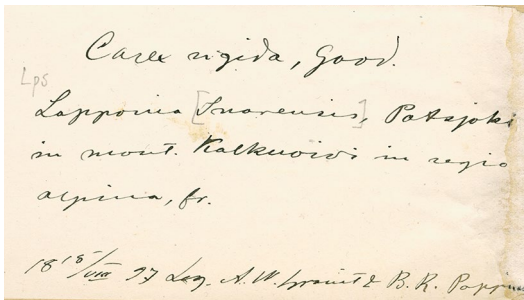 Carex rigida, Good.
Lps
Lapponia [Inarensis], Patsjoki
in mont. Kalkuoivi in regio
alpina, fr.
18 15/VIII 97 Leg. A. W. & B. R. Poppius